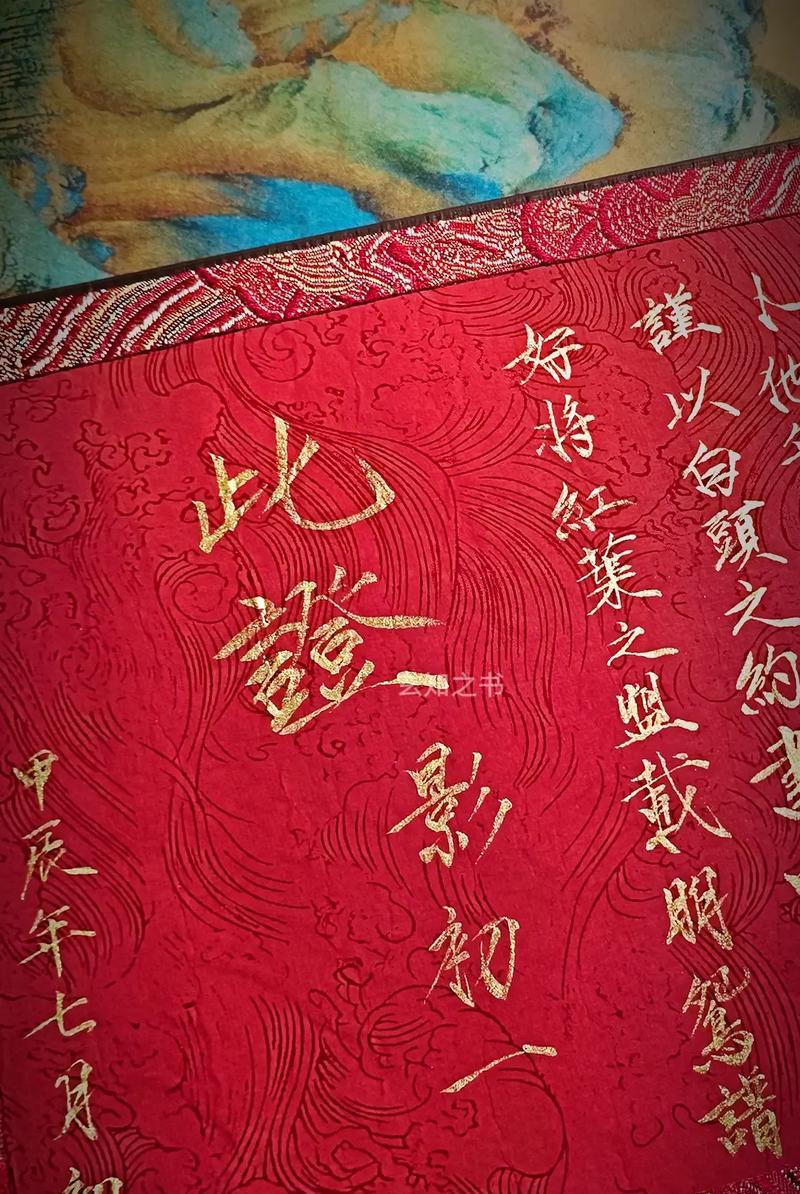 卜他
謹以白頭之約書
好將紅葉之盟載明鴛譜
此證
影初一
甲辰年七月初